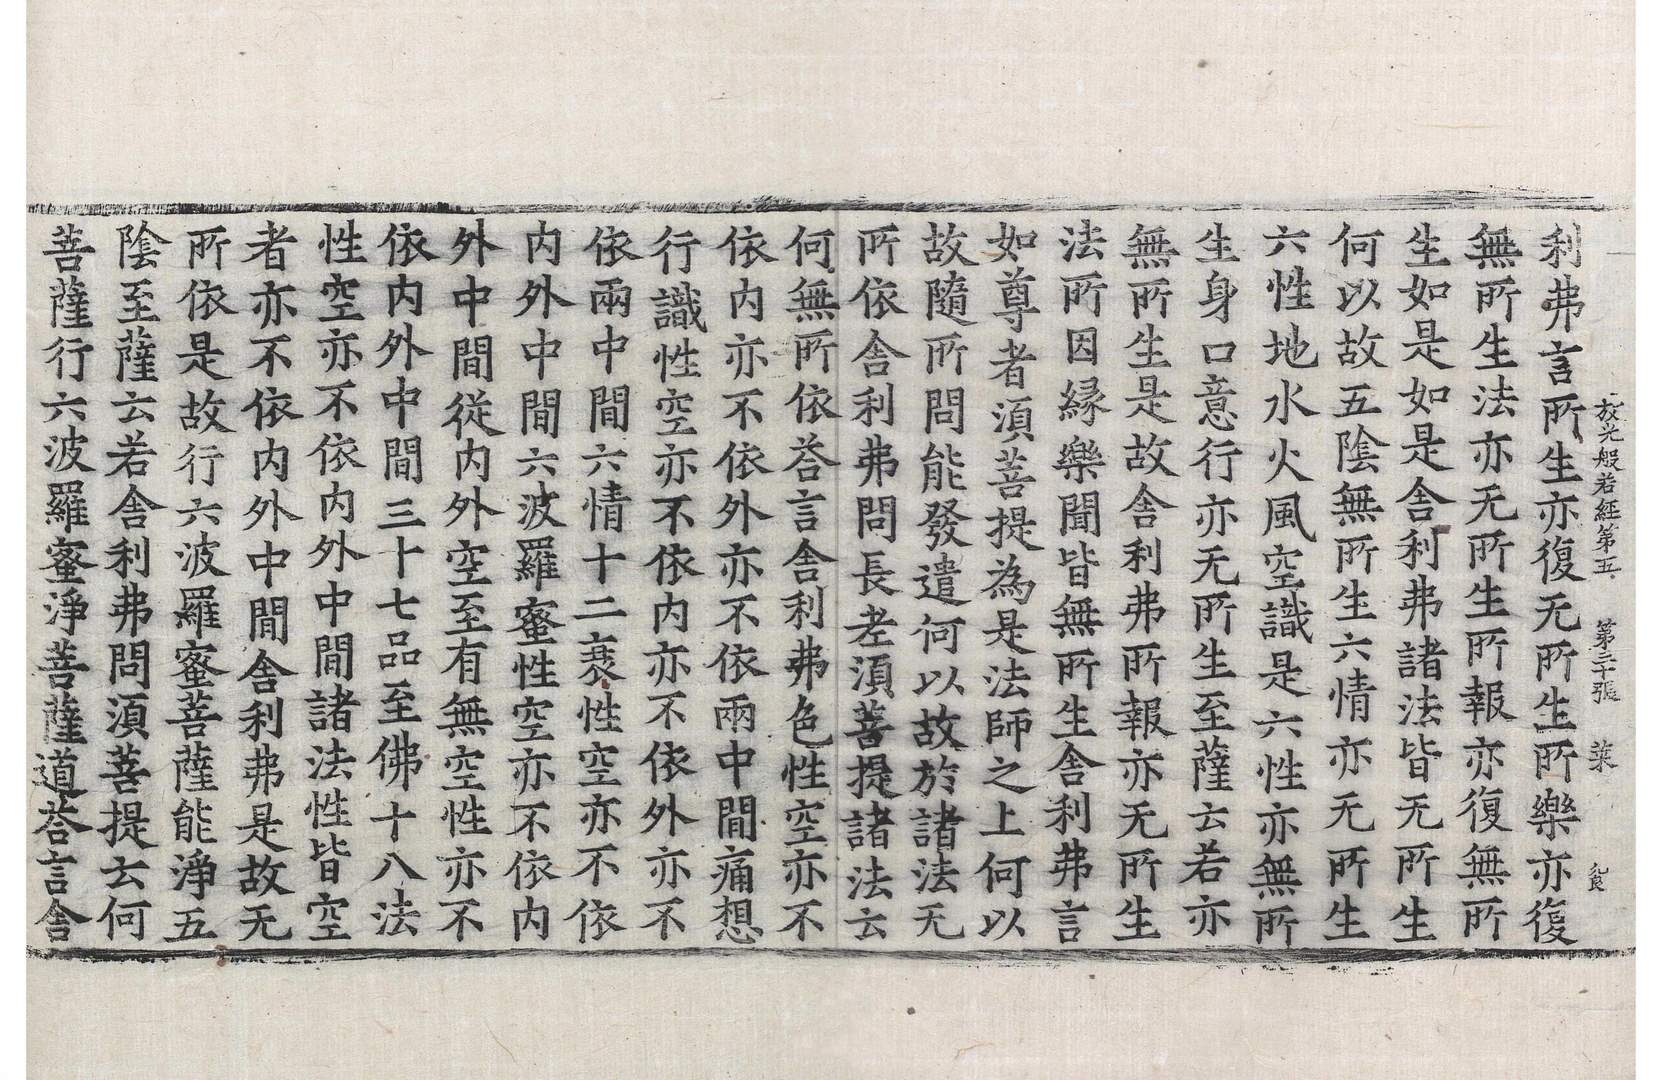 放光般若經第五　第三十張　菜
利弗言所生亦復无所生所樂亦復
無所生法亦无所生所報亦復無所
生如是如是舍利弗諸法皆无所生
何以故五陰無所生六情亦无所生
六性地水火風空識是六性亦無所
生身口意行亦无所生至薩云若亦
無所生是故舍利弗所報亦无所生
法所因緣樂聞皆無所生舍利弗言
如尊者須菩提為是法師之上何以
故隨所問能發遣何以故於諸法无
所依舍利弗問長老須菩提諸法云
何無所依荅言舍利弗色性空亦不
依內亦不依外亦不依兩中間痛想
行識性空亦不依內亦不依外亦不
依兩中間六情十二衰性空亦不依
內外中間六波羅蜜性空亦不依內
外中間從內外空至有無空性亦不
依內外中間三十七品至佛十八法
性空亦不依內外中間諸法性皆空
者亦不依內外中間舍利弗是故无
所依是故行六波羅蜜菩薩能淨五
陰至薩云若舍利弗問須菩提云何
菩薩行六波羅蜜淨菩薩道荅言舍